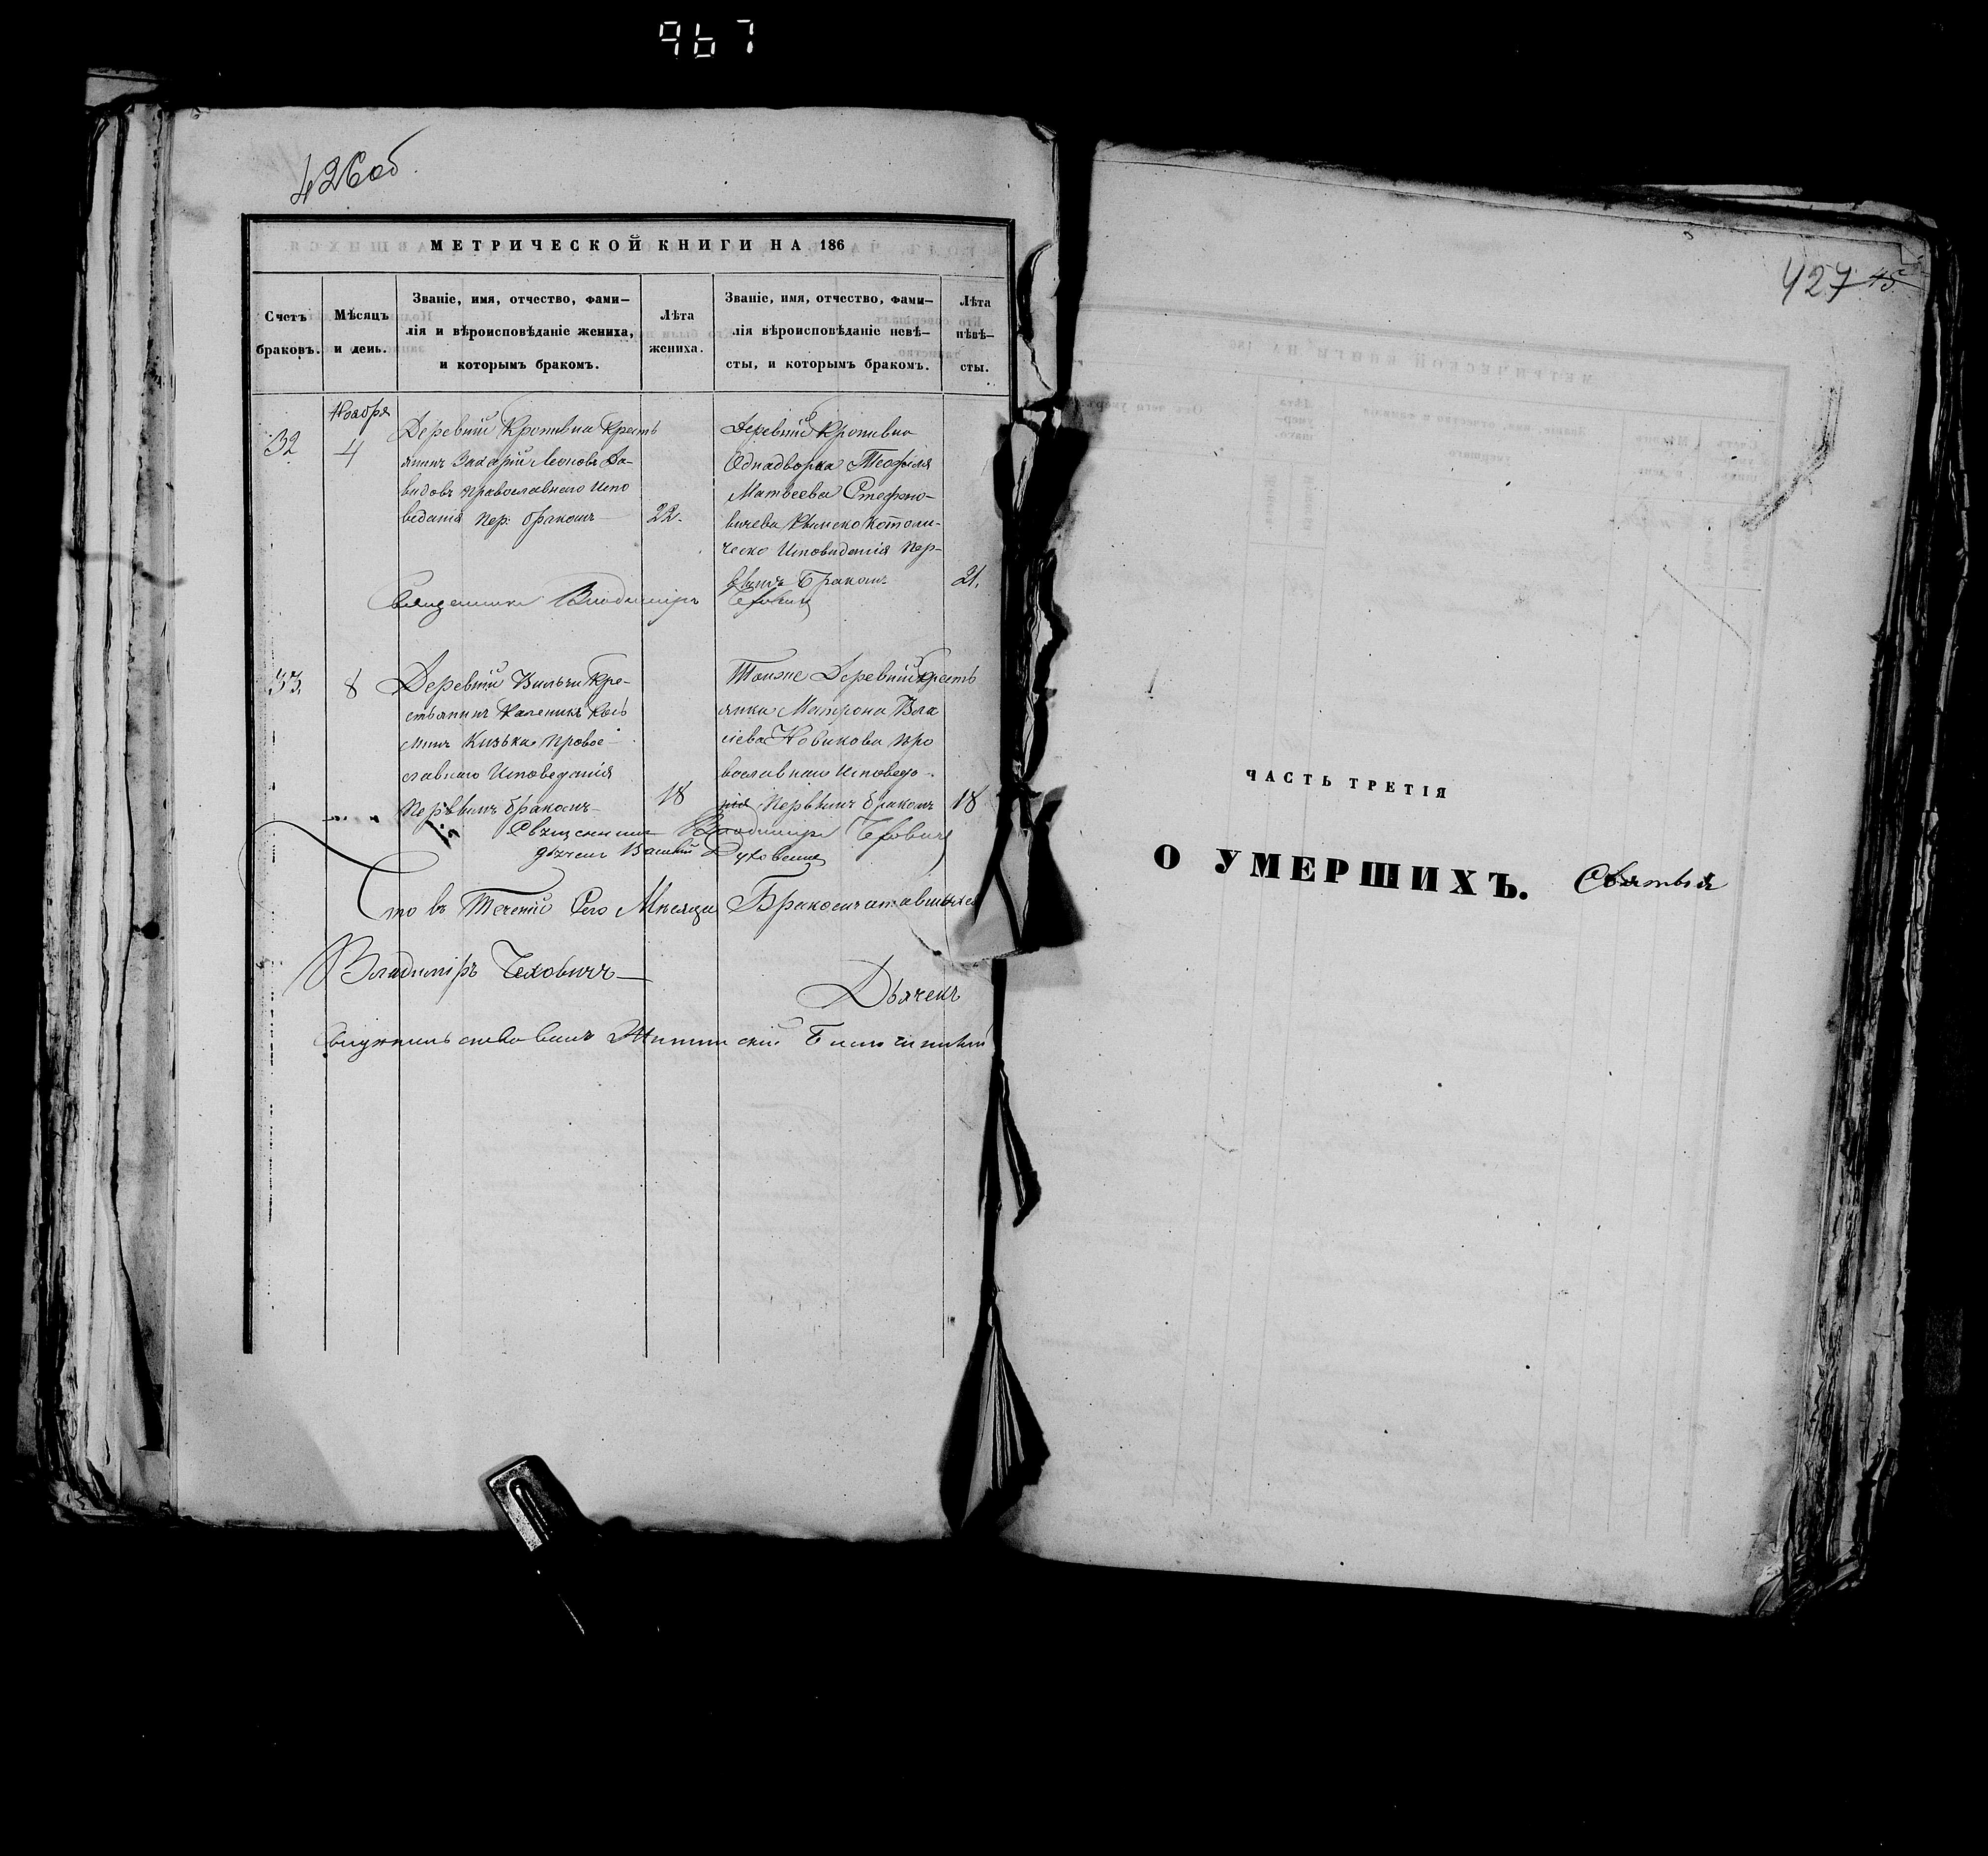 967
426об.
МЕТРИЧЕСКОЙ КНИГИ НА 186
Счетъ браковъ.
Мѣсяцъ и день.
Званіе, имя, отчество, фами–
лія и вѣроисповѣданіе жениха,
и которымъ бракомъ.
Лѣта жениха.
Званіе, имя, отчество, фами–
лія вѣроисповѣданіе невѣ–
сты, и которымъ бракомъ.
Лѣта невѣ–
сты.
Ноября
32
4
Деревни Кропивна Кресть
янинъ Захарій Леоновъ Да-
видовъ Православнаго Испо
веданія пер: бракомъ
22.
Деревни Кропивна
Однадворка Теофиля
Матвеева Стефано-
вичева Римско Католи-
ческо Исповиданія Пер-
вымъ Бракомъ
21.
Священникъ Владиміръ Чехович
33.
8
Деревни Вильчи Кре-
стьянинъ Каленикъ Кось
минъ Кизька Провос-
славнаго Исповеданія
Первымъ бракомъ
18
Тоиже Деревни кресть
янка Матрона Вла
сіева Новикова пра
вославнаго Исповеда-
нія Первымъ бракомъ
18
Священникъ Владимиръ Чехович
дьячекъ Василій
Что въ Теченіи Сего Мѣсяца Бракосочетавшихся
Владиміръ Чеховичъ
Дьячекъ
427 45
ЧАСТЬ ТРЕТІЯ
О УМЕРШИХЪ.